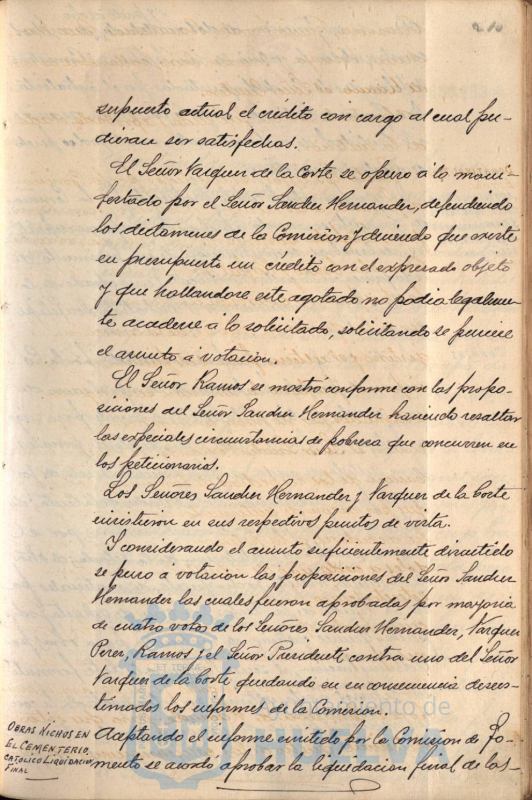 210
supuesto actual el crédito con cargo al cual pu-
dieran ser satisfechas.
El Señor Vazquez de la Corte se opuso á lo mani-
festado por el Señor Sanchez Hernandez, defendiendo
los dictamenes de la Comision y diciendo que existe
en presupuesto un crédito con el expresado objeto
y que hallandose este agotado no podia legalmen-
te accederse á lo solicitado, solicitando se pusiese
el asunto á votación.
El Señor Ramos se mostró conforme con las propo-
siciones del Señor Sanchez Hernandez haciendo resaltar
las especiales circunstancias de pobreza que concurren en
los peticionarios.
Los Señores Sanchez Hernandez y Vazquez de la Corte
insistieron en sus respectivos puntos de vista.
Y considerando el asunto suficientemente discutido
se puso á votación las proposiciones del Señor Sanchez
Hernandez las cuales fueron aprobadas por mayoria
de cuatro votos de los Señores Sanchez Hernandez, Vazquez
Perez, Ramos y el Señor Presidente contra uno del Señor
Vazquez de la Corte quedando en su consecuencia deses-
timados los informes de la Comision.
OBRAS NICHOS EN
EL CEMENTERIO
CATOLICO LIQUIDACION
FINAL
Aceptando el informe emitido por la Comision de Fo-
mento se acordo aprobar la liquidacion final de las
Ayuntamiento de